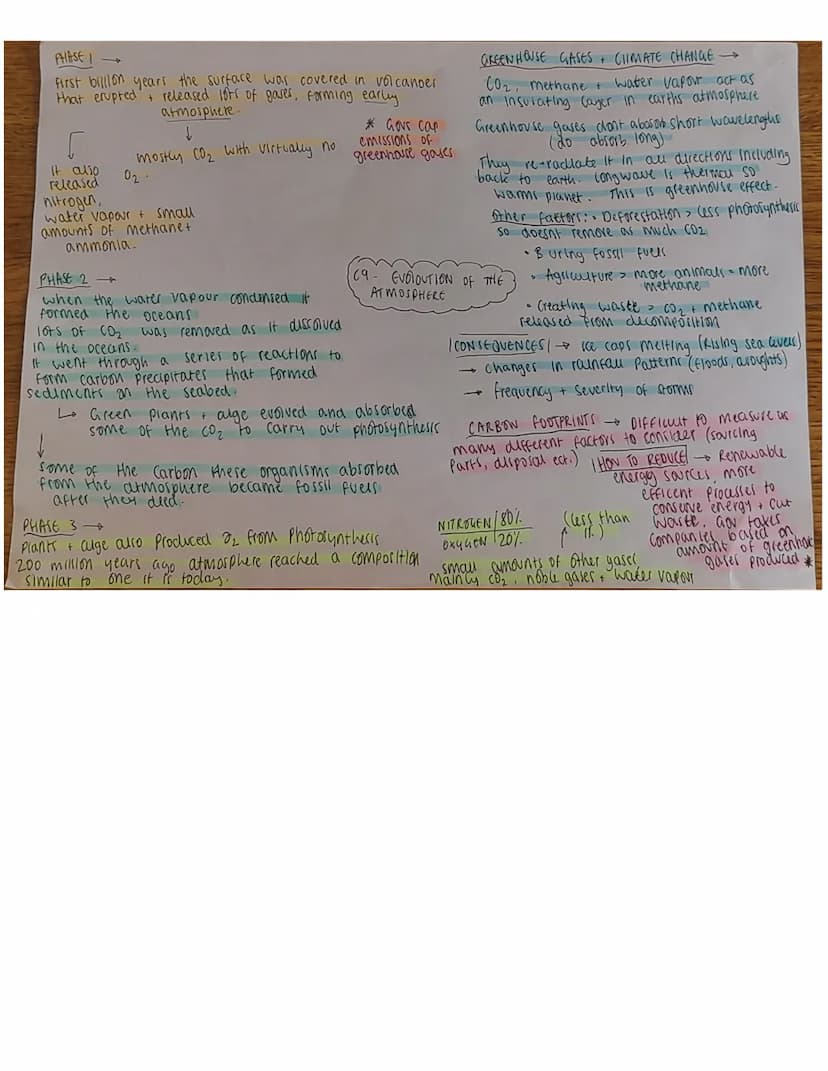 PHASE 1 →
First billion years the surface was covered in volcanoes
that erupted + released lots of gases, forming early
atmosphere.
mostly CO2 with virtually no
O2.
It also
released
nitrogen,
water vapour + small
amounts of methane +
ammonia.
* Govs cap
emissions of
greenhouse gases
PHASE 2 →
when the water vapour condensed it
formed the oceans
lots of CO2 was removed as it dissolved
in the oceans.
It went through a series of reactions to
form carbon precipitates that formed
sediments on the seabed.
↳ Green plants + alge evolved and absorbed
some of the CO2 to carry out photosynthesis
↓
Some of the carbon these organisms absorbed
from the atmosphere became fossil fuels
after they died.
PHASE 3 →
Plants + alge also produced O2 from photosynthesis
200 million years ago atmosphere reached a composition
similar to one it is today.
C9 - EVOLOUTION OF THE
ATMOSPHERE
GREENHOUSE GASES + CLIMATE CHANGE →
CO2, methane + water vapour act as
an insulating layer in earths atmosphere
Greenhouse gases dont absorb short wavelengths
(do absorb long)
They re-radiate it in all directions including
back to earth. longwave is thermal so
warms planet. This is greenhouse effect.
Other factors: • Deforestation > less photosynthesis
so doesnt remove as much CO2
• Buring fossil fuels
• Agriculture > more animals = more
methane
• Creating waste > CO2 + methane
released from decomposition
|CONSEQUENCES| → Ice caps melting (Rising sea levels)
→ changes in rainfall patterns (floods, droughts)
→ frequency + severity of storms
CARBON FOOTPRINTS → DIFFICULT to measure as
many different factors to consider (sourcing
parts, disposal ect.) |HOW TO REDUCE| → Renewable
energy sources, more
efficent processes to
conserve energy + cut
waste, gov taxes
companies based on
amount of greenhouse
gases produced *
NITROGEN | 80%
OXYGEN | 20%
(less than
1%)
small amounts of other gases
mainly CO2, noble gases + water vapour